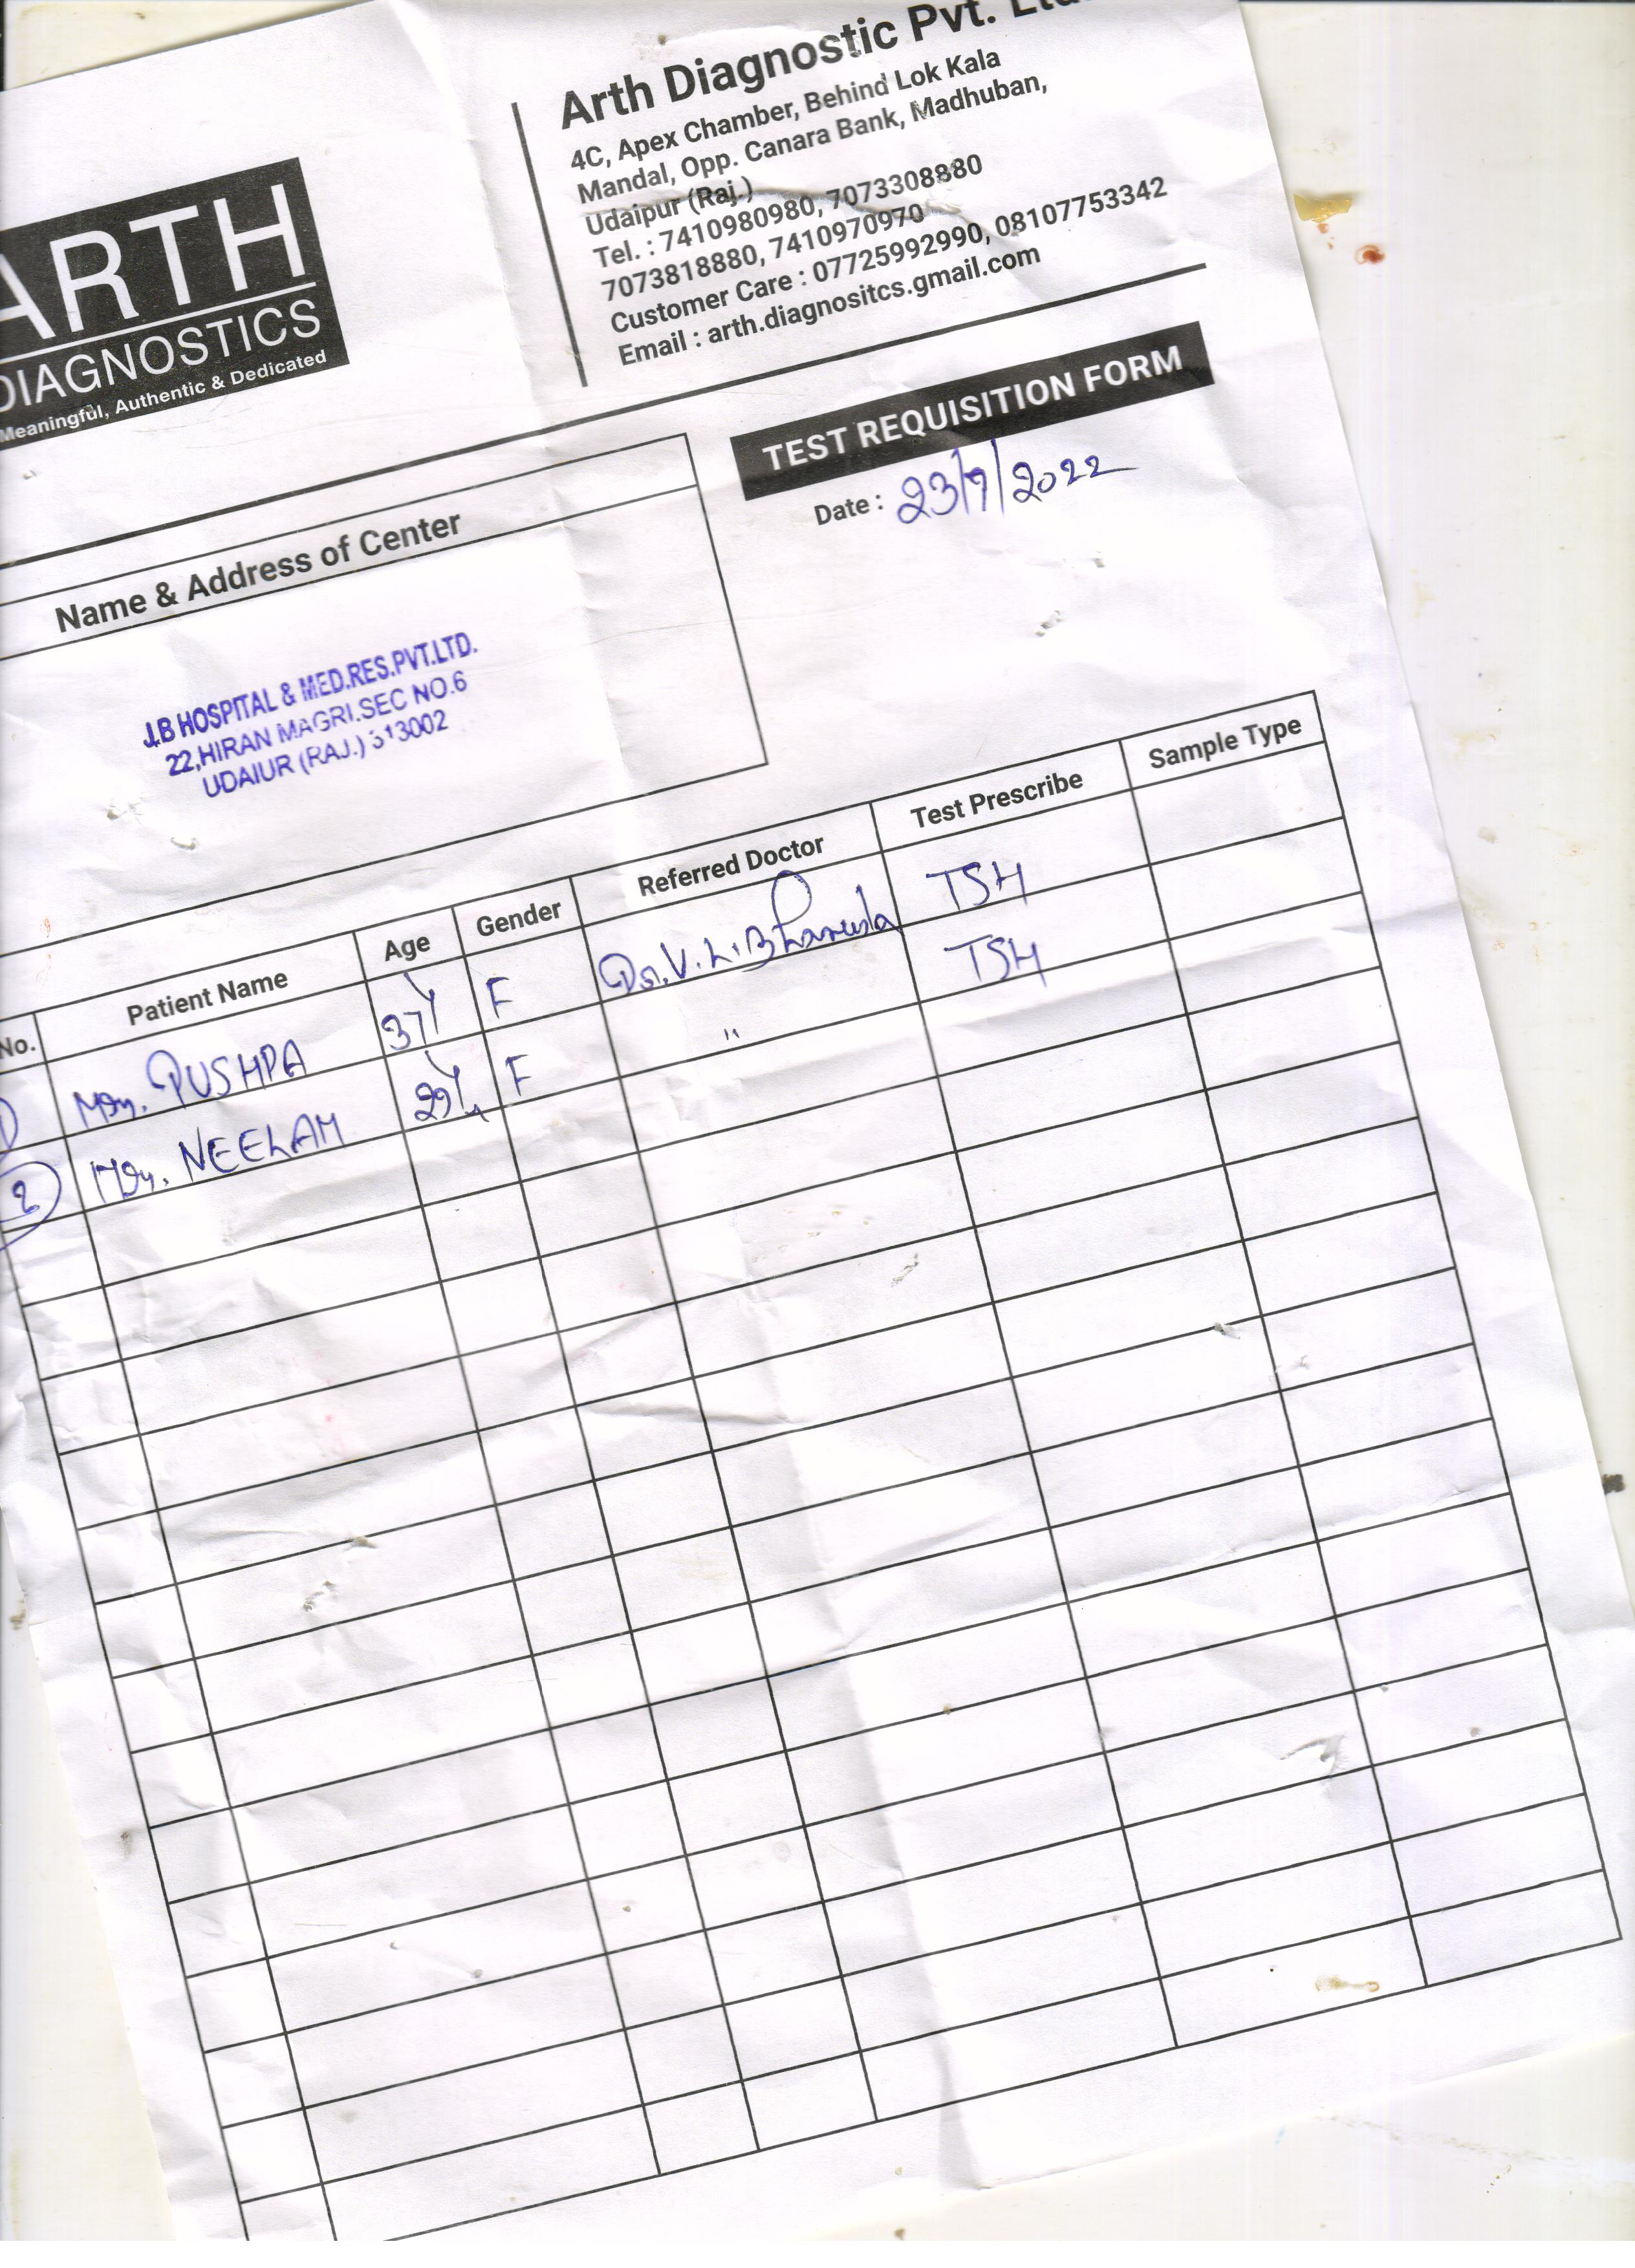 Arth Diagnostic Pvt. Ltd.
4C, Apex Chamber, Behind Lok Kala
Mandal, Opp. Canara Bank, Madhuban,
Udaipur (Raj.)
Tel. : 7410980980, 7073308880
7073818880, 7410970970
Customer Care : 07725992990, 08107753342
Email : arth.diagnositcs.gmail.com
ARTH
DIAGNOSTICS
Meaningful, Authentic & Dedicated
TEST REQUISITION FORM
Date : 23/9/2022
Name & Address of Center
J.B HOSPITAL & MED.RES.PVT.LTD.
22,HIRAN MAGRI.SEC NO.6
UDAIUR (RAJ.) 313002
No. Patient Name Age Gender Referred Doctor Test Prescribe Sample Type
PUSHPA 37Y F Dr. V. L. TSH
2 NEELAM 29Y F " TSH